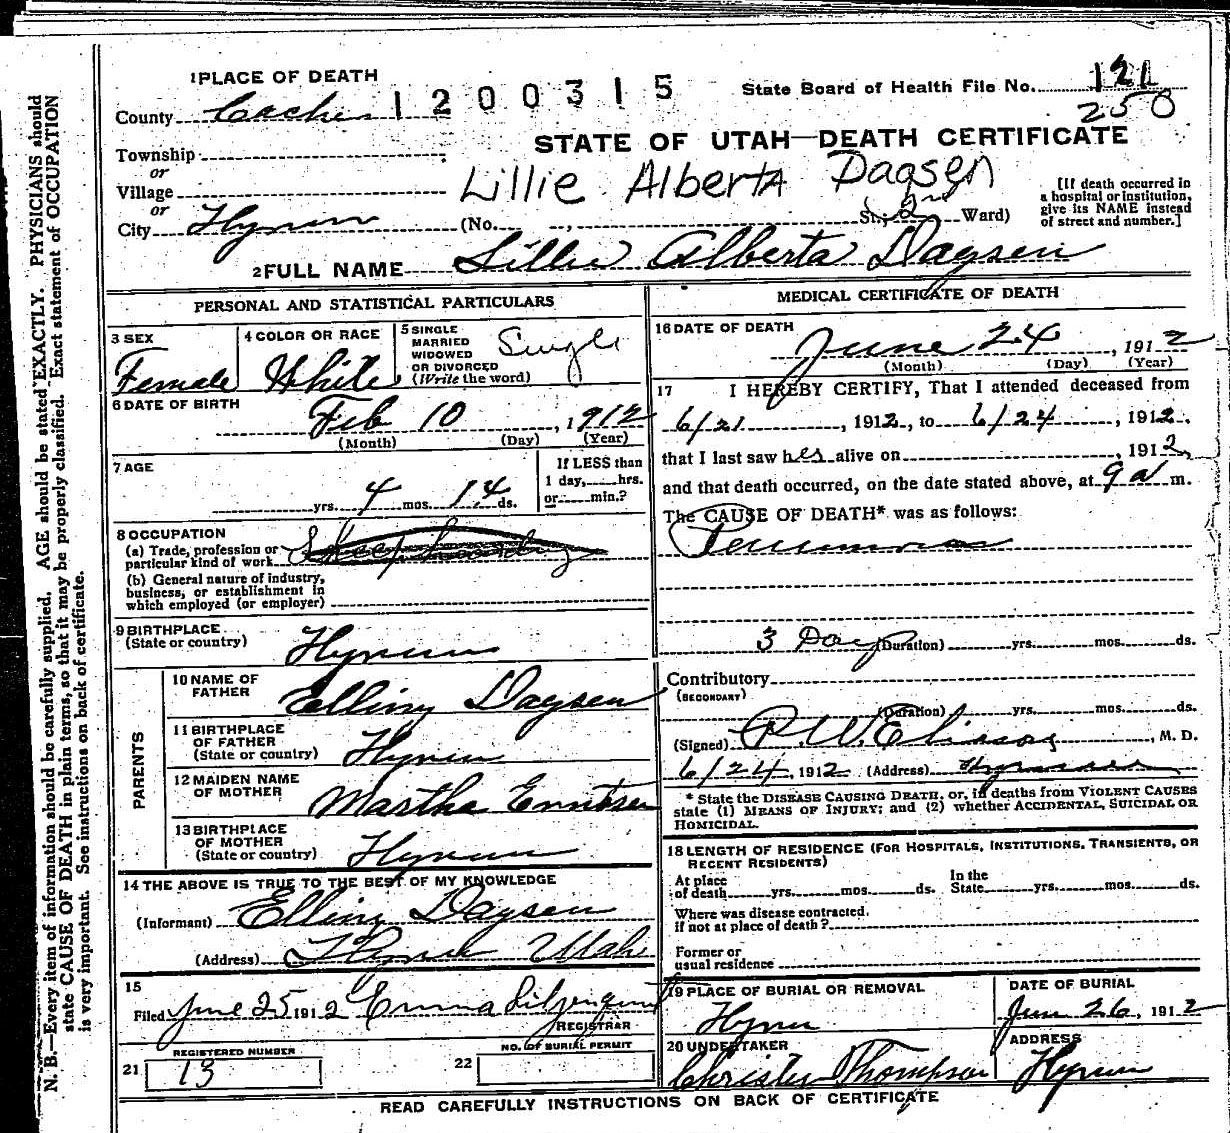 1 PLACE OF DEATH
1200315
State Board of Health File No. 121
250
County Cache
STATE OF UTAH—DEATH CERTIFICATE
Township
or
Village
Lillie Alberta Dagsen
[If death occurred in a hospital or institution, give its NAME instead of street and number.]
or
City Hyrum (No. St.; 2nd Ward)
2 FULL NAME Lillie Alberta Dagsen
PERSONAL AND STATISTICAL PARTICULARS
3 SEX
Female
4 COLOR OR RACE
White
5 SINGLE
MARRIED
WIDOWED
OR DIVORCED
(Write the word)
Single
6 DATE OF BIRTH
Feb 10, 1912
(Month) (Day) (Year)
7 AGE
yrs. 4 mos. 14 ds.
If LESS than
1 day, hrs.
or min.?
8 OCCUPATION
(a) Trade, profession or
particular kind of work
(b) General nature of industry,
business, or establishment in
which employed (or employer)
9 BIRTHPLACE
(State or country)
Hyrum
PARENTS
10 NAME OF
FATHER
Elling Dagsen
11 BIRTHPLACE
OF FATHER
(State or country)
Hyrum
12 MAIDEN NAME
OF MOTHER
Martha
13 BIRTHPLACE
OF MOTHER
(State or country)
Hyrum
14 THE ABOVE IS TRUE TO THE BEST OF MY KNOWLEDGE
(Informant) Elling Dagsen
(Address) Hyrum Utah
15
Filed June 25 1912 Emma
REGISTRAR
REGISTERED NUMBER
21 13
NO. OF BURIAL PERMIT
22
MEDICAL CERTIFICATE OF DEATH
16 DATE OF DEATH
June 24, 1912
(Month) (Day) (Year)
17 I HEREBY CERTIFY, That I attended deceased from
6/21, 1912, to 6/24, 1912,
that I last saw her alive on , 1912,
and that death occurred, on the date stated above, at 9 a m.
The CAUSE OF DEATH* was as follows:
3 Days (Duration) yrs. mos. ds.
Contributory
(SECONDARY)
(Duration) yrs. mos. ds.
(Signed) , M. D.
6/24, 1912 (Address) Hyrum
* State the DISEASE CAUSING DEATH, or, in deaths from VIOLENT CAUSES
state (1) MEANS OF INJURY; and (2) whether ACCIDENTAL, SUICIDAL OR
HOMICIDAL.
18 LENGTH OF RESIDENCE (FOR HOSPITALS, INSTITUTIONS, TRANSIENTS, OR
RECENT RESIDENTS)
At place
of death yrs. mos. ds.
In the
State yrs. mos. ds.
Where was disease contracted,
if not at place of death?
Former or
usual residence
19 PLACE OF BURIAL OR REMOVAL
Hyrum
DATE OF BURIAL
June 26, 1912
20 UNDERTAKER
Thompson
ADDRESS
Hyrum
READ CAREFULLY INSTRUCTIONS ON BACK OF CERTIFICATE
N. B.—Every item of information should be carefully supplied. AGE should be stated EXACTLY. PHYSICIANS should
state CAUSE OF DEATH in plain terms, so that it may be properly classified. Exact statement of OCCUPATION
is very important. See instructions on back of certificate.